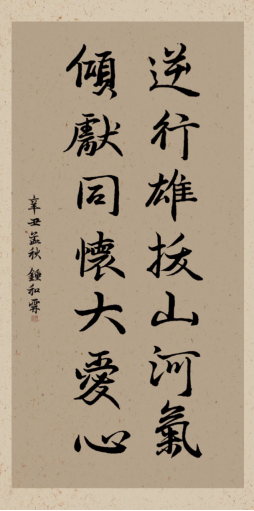 逆行雄拔山河氣
傾獻同懷大愛心
辛丑孟秋 鍾和霖